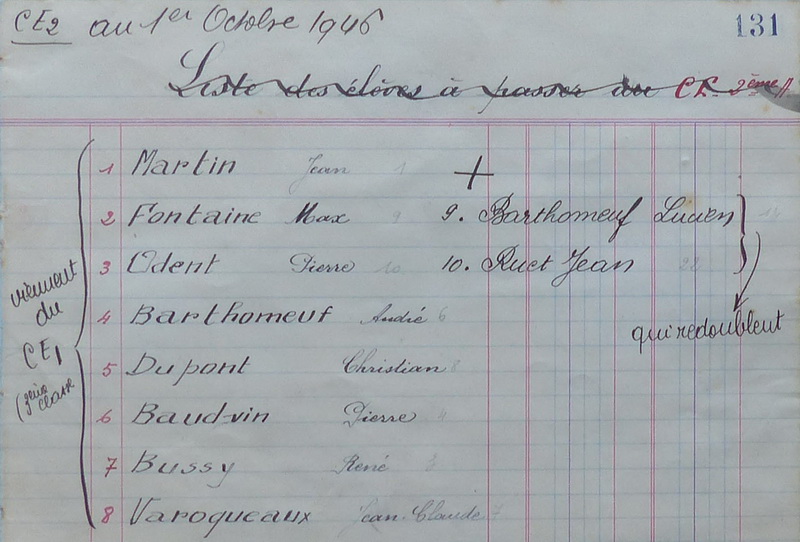 CE2 au 1er Octobre 1946 131
Liste des élèves à passer au CE. 2ème A
1 Martin Jean 1 +
2 Fontaine Max 9 9. Barthomeuf Lucien 14
3 Odent Pierre 10 10. Ruet Jean 22
4 Barthomeuf André 6
qui redoublent
viennent
du
CE1
(2ème
classe
5 Dupont Christian 8
6 Baudvin Pierre 4
7 Bussy René 3
8 Varoqueaux Jean-Claude 7